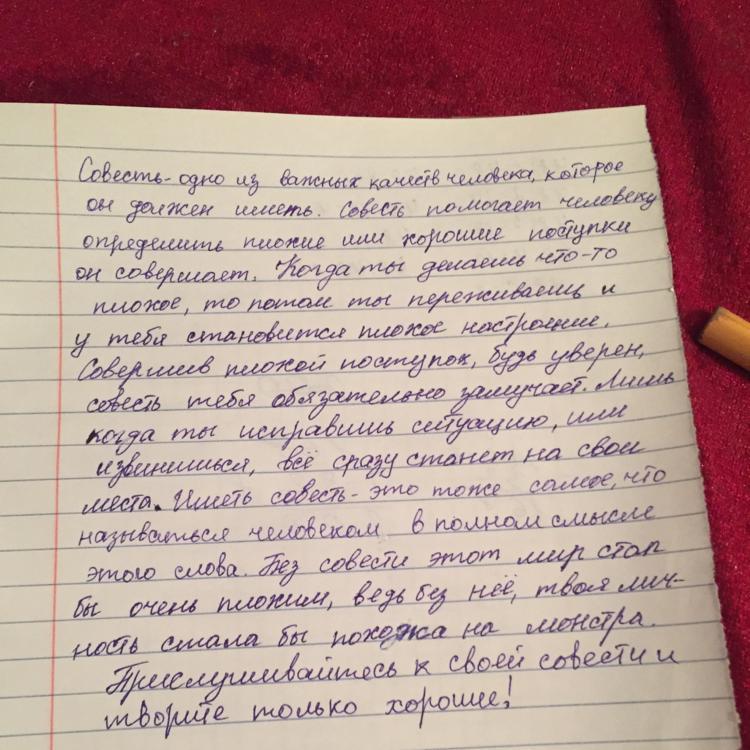 Совесть - одно из важных качеств человека, которое
он должен иметь. Совесть помогает человеку
определить плохие или хорошие поступки
он совершает. Когда ты делаешь что-то
плохое, то потом ты переживаешь и
у тебя становится плохое настроение.
Совершив плохой поступок, будь уверен,
совесть тебя обязательно замучает. Лишь
когда ты исправишь ситуацию, или
извинишься, всё сразу станет на свои
места. Иметь совесть - это тоже самое, что
называться человеком в полном смысле
этого слова. Без совести этот мир стал
бы очень плохим, ведь без неё, твоя лич-
ность стала бы похожа на монстра.
Прислушивайтесь к своей совести и
творите только хорошие!